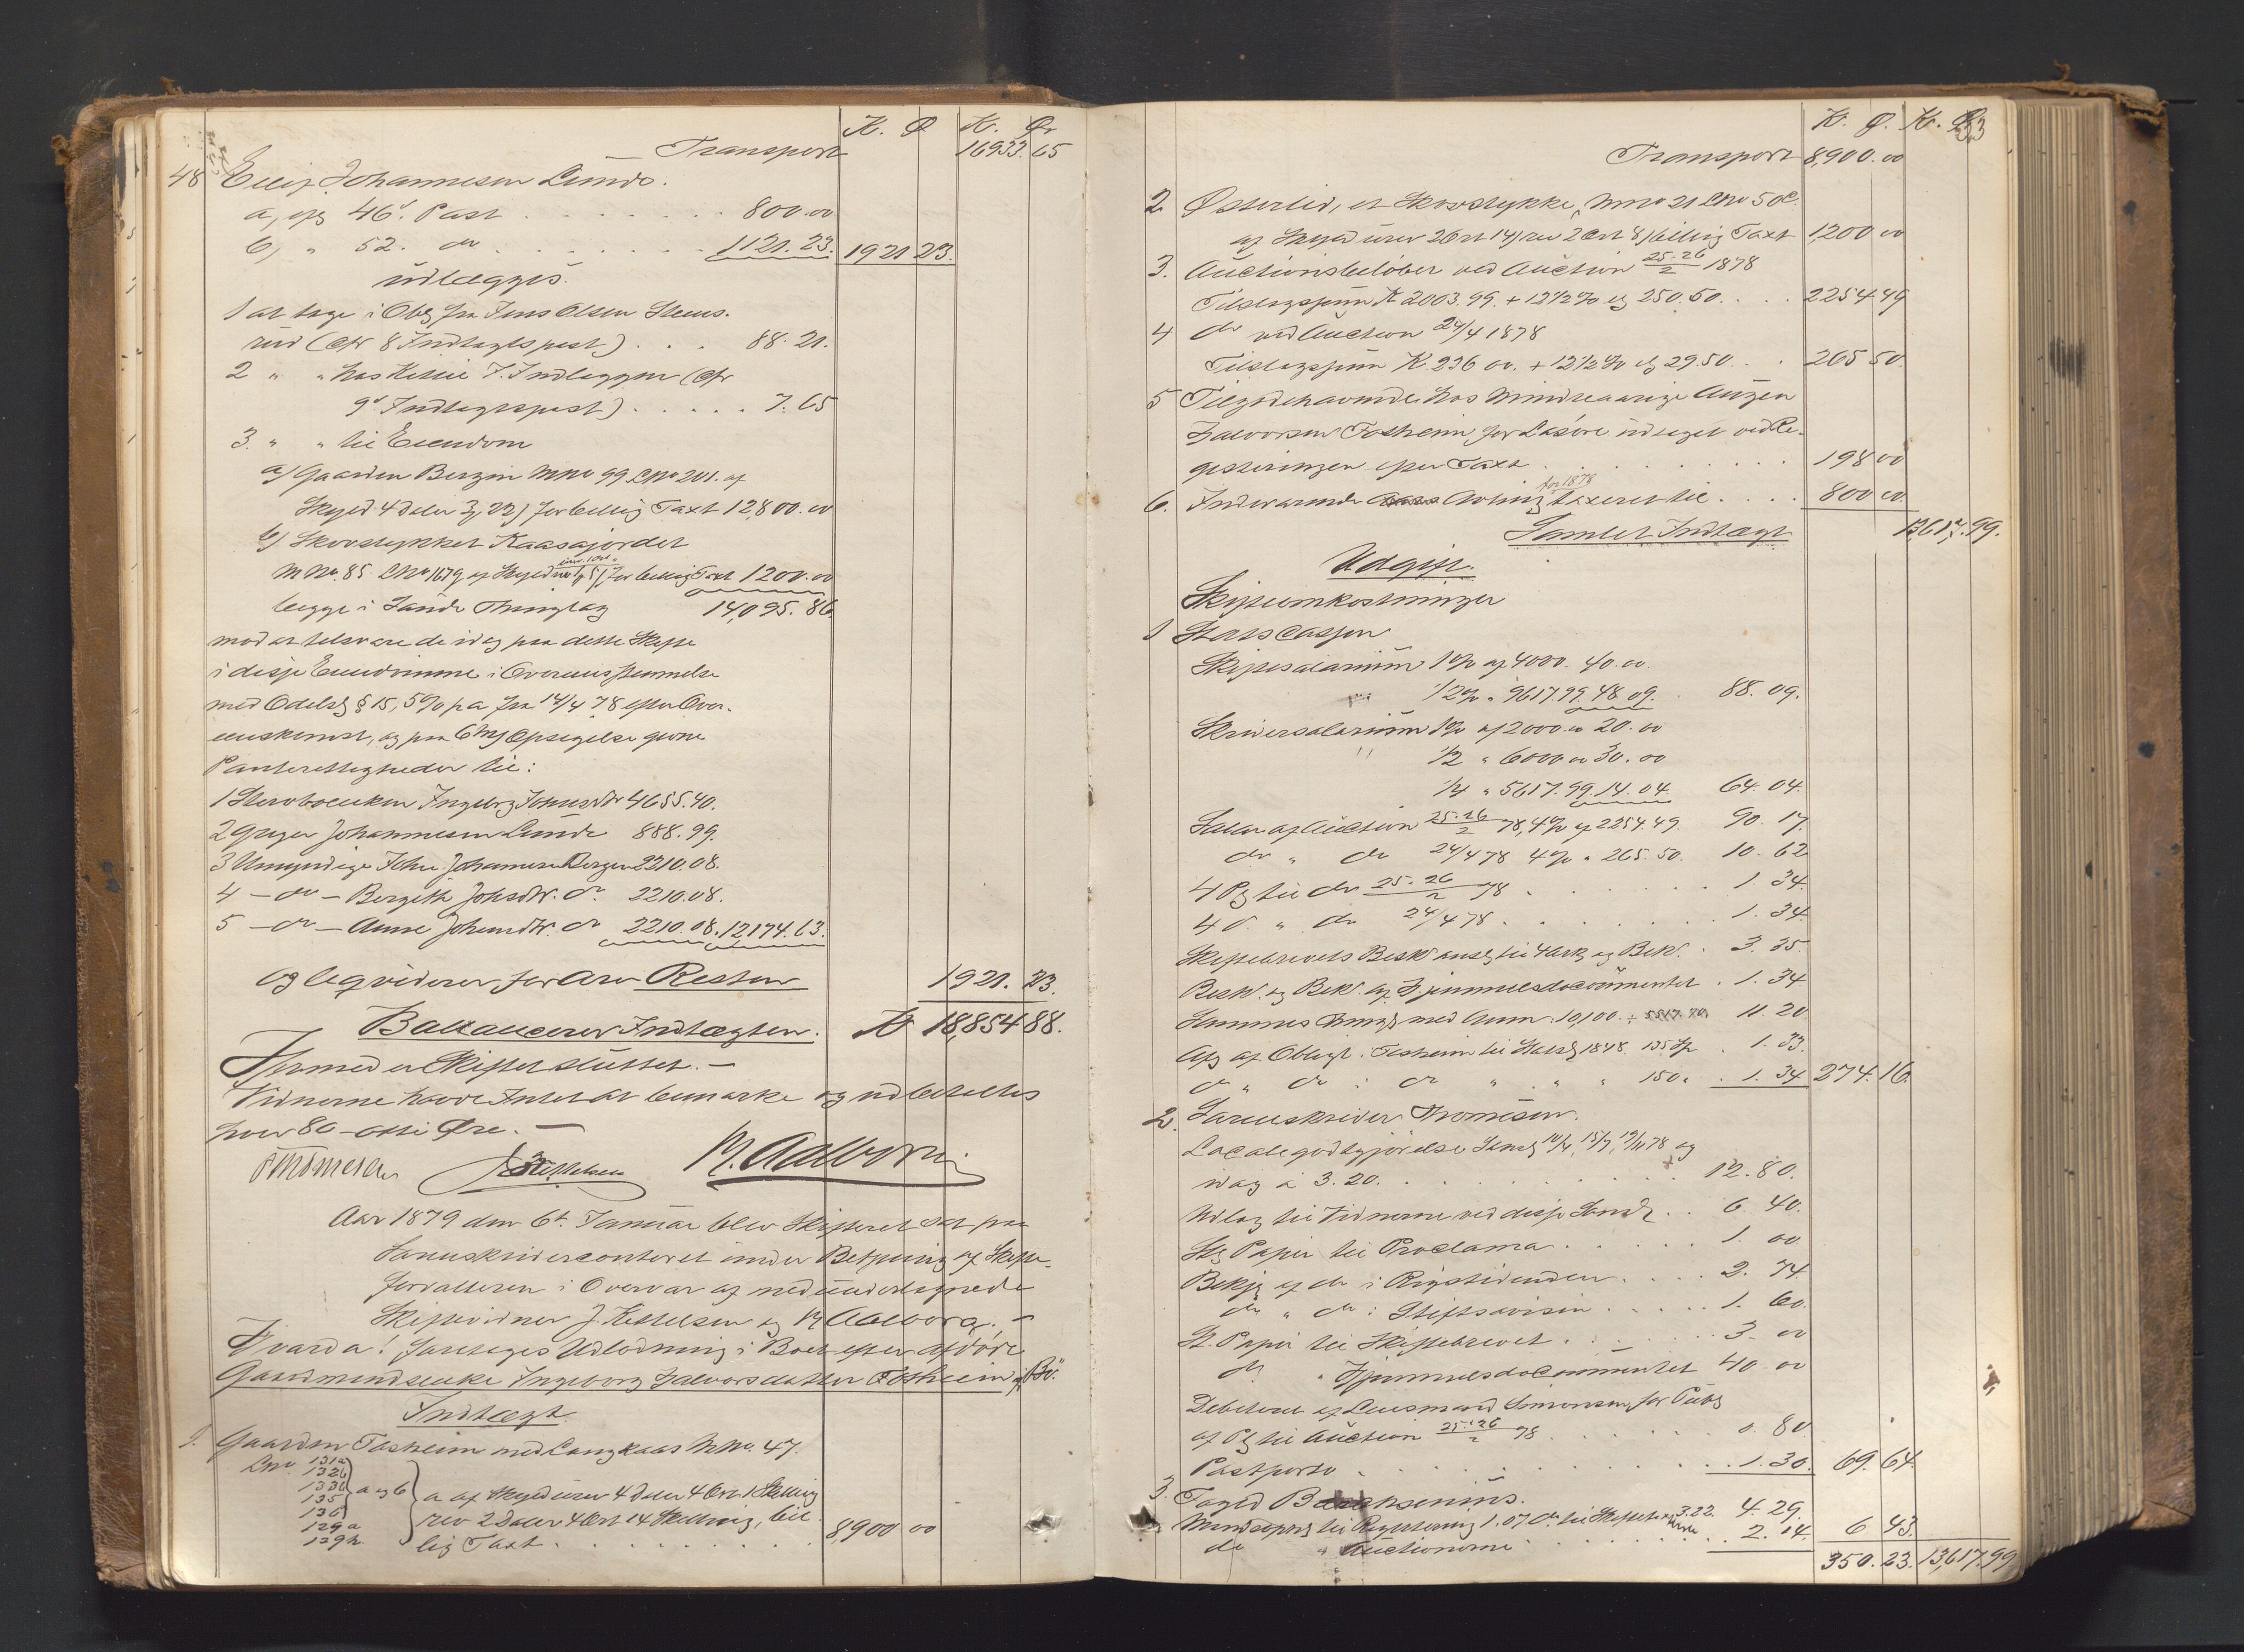 K. Ø K. Ør
Transport 16933.65
48 Ellef Johannesen Lunde.
a, efg 46d. Post . . . . 800.00
b, " 52. do . . . . 1121.23. 1921 23.
udlægges.
1 at tage i Obl fra Jens Olsen Stens-
rud (cfr 8 Indtægtspost) . . . 88.21.
2 " " hos Kittil T. Indlæggen (cfr
9d Indtægtspost) . . . . . 7.65
3. " " til Eiendom
a) Gaarden Bergen MNo 99 LNo 201. af
Skyld 4 Daler 3 22) for billig Taxt 12,800.00
b) Skovstykket Kaasajordet
MNo. 85 LNo 167g af Skyld for billig Taxt 1200.00
begge i Sande Thinglag 14,095.86
mod at tilsvare de idag paa dette Skifte
i disse Eiendomme i Overensstemmelse
med Odelsl § 15, 5% p a fra 14/4 78 efter Over-
enskomst, og paa 6 Mds Opsigelse givne
Panterettigheder til:
1 Stervboenken Ingeborg Jonsdtr 4655.40.
2 Gregar Johannesen Lunde 888.99.
3 Umyndige John Johannesen Bergen 2210.08.
4 – do – Bergith Johsdtr. do 2210.08.
5 – do – Anne Johansdtr. do 2210.08. 12174.63.
og liqviderer for Arv Resten 1921.23.
Ballancerer Indtægten. K 18,854 88.
Hermed er Skiftet sluttet. –
Vidnerne havde Intet at bemærke og udbetaltes
hver 80 – otti Øre. –
Thomesen J Kittelsen M. Aalborg
Aar 1879 den 6t. Januar blev Skifteret sat paa
Sorenskrivercontoret under Betjening af Skifte-
forvalteren i Overvær af medundertegnede
Skiftevidner J. Kittelsen og M Aalborg. –
Hvorda! foretoges Udlodning i Boet efter afdøde
Gaardmandsenke Ingeborg Halvorsdatter Fosheim i Bø.
Indtægt.
1. Gaarden Fosheim med Langkaas MNo. 47.
LNo 131a
132b
133b
135
136
129a
129h
a og b
a af Skyld urev 4 Daler 4 Ort 1 Skilling
rev 2 Daler 4 Ort 14 Skilling, bil-
lig Taxt . . . . . . . . 8,900 00
K. Ø. K. Ø.
33
Transport 8,900.00
2. Østerlid, et Skovstykke, MNo 21 LNo 50c.
af Skyld urev 2 Ort 14) rev 2 Ort 8) billig Taxt 1,200 00
3. Auctionsbeløber ved Auction 25.26/2 1878
Tilslagssum K 2003.99. + 12 1/2 % er 250.50. . . . 2254 49
4 do ved Auction 24/4 1878
Tilslagssum K. 236 00. + 12 1/2 % er 29.50 . . . 265 50
5 Tilgodehavende hos Mindreaarige Augen
Halvorsen Fosheim for Løsøre udtaget ved Re-
gistreringen efter Taxt . . . . . . . . 198 00
6. Indeværende Aars Avling for 1878 taxeret til . . . . 800 00.
Samlet Indtægt 13,617.99.
Udgift.
Skifteomkostninger
1 Statscassen
Skiftesalarium 1% af 4000. 40.00.
1/2% " 9617.99. 48.09. 88.09.
Skriversalarium 1% af 2000.00 20.00
" 1/2 " 6000 00 30.00
1/4 " 5617.99. 14.04. 64.04.
Salar af Auction 25.26/2 78, 4% af 2254.49 90.17.
do " do 24/4 78 4% " 265.50. 10.62
4 Pl til do 25.26/2 78 . . . . 1.34.
4 d. " do 24/4 78 . . . . 1.34.
Skiftebrevets Beskr. ansl. til 4 Ark og Bekr. . 3.35.
Beskr. og Bekr. af Hjemmelsdocumentet . 1.34
Sammes Thingl med Anm. 10,100. 11.20
Afg af Obligt. i Fosheim til Statsk 1848 135 Sp . 1.33.
do " do i do " " " 150 " . 1.34 274.16.
2. Sorenskriver Thomesen.
Localegodtgjørelse Saml 10/4, 15/7, 19/11 78 og
idag à 3.20. . . . . . . . 12.80.
Udlæg til Vidnerne ved disse Saml . . 6.40.
St Papir til Proclama . . . . . 1.00
Bekj af do i Rigstidenden . . . . 2.74.
do " do i Stiftsavisen . . . . . 1.60.
St. Papir til Skiftebrevet . . . . . 3.00
do " Hjemmelsdocumentet 40.00
Debiteret af Lensmand Simonsen for Publ
af Pl til Auction 25.26/2 78 . . . . 0.80
Postporto . . . . . . . . . . 1.30. 69.64.
3. Foged Baumann.
Mandsopns til Registrering 1.07 do til Skiftet 3.22. 4.29.
do " Auctionerne . . . . . 2.14. 6 43.
350.23. 13,617.99